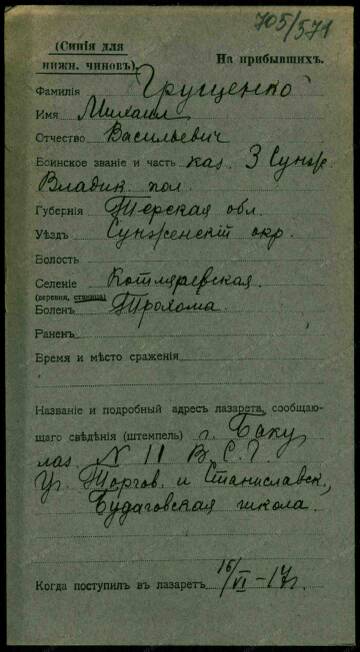 705/571
(Синія для
нижн. чиновъ).
На прибывшихъ.
Фамилія Грущенко
Имя Михаил
Отчество Васильевич
Воинское званіе и часть каз. 3 Сунж.
Владик. пол.
Губернія Терская обл.
Уѣздъ Сунженскій окр.
Волость
Селеніе Котляревская
(деревня, станица)
Боленъ Трахома.
Раненъ
Время и мѣсто сраженія
Названіе и подробный адресъ лазарета, сообщаю-
щаго свѣдѣнія (штемпель) г. Баку
лаз. N 11 В. С. Г.
Уг. Торгов. и Станиславск.,
Будаговская школа.
Когда поступилъ въ лазаретъ 16/VI-17г.